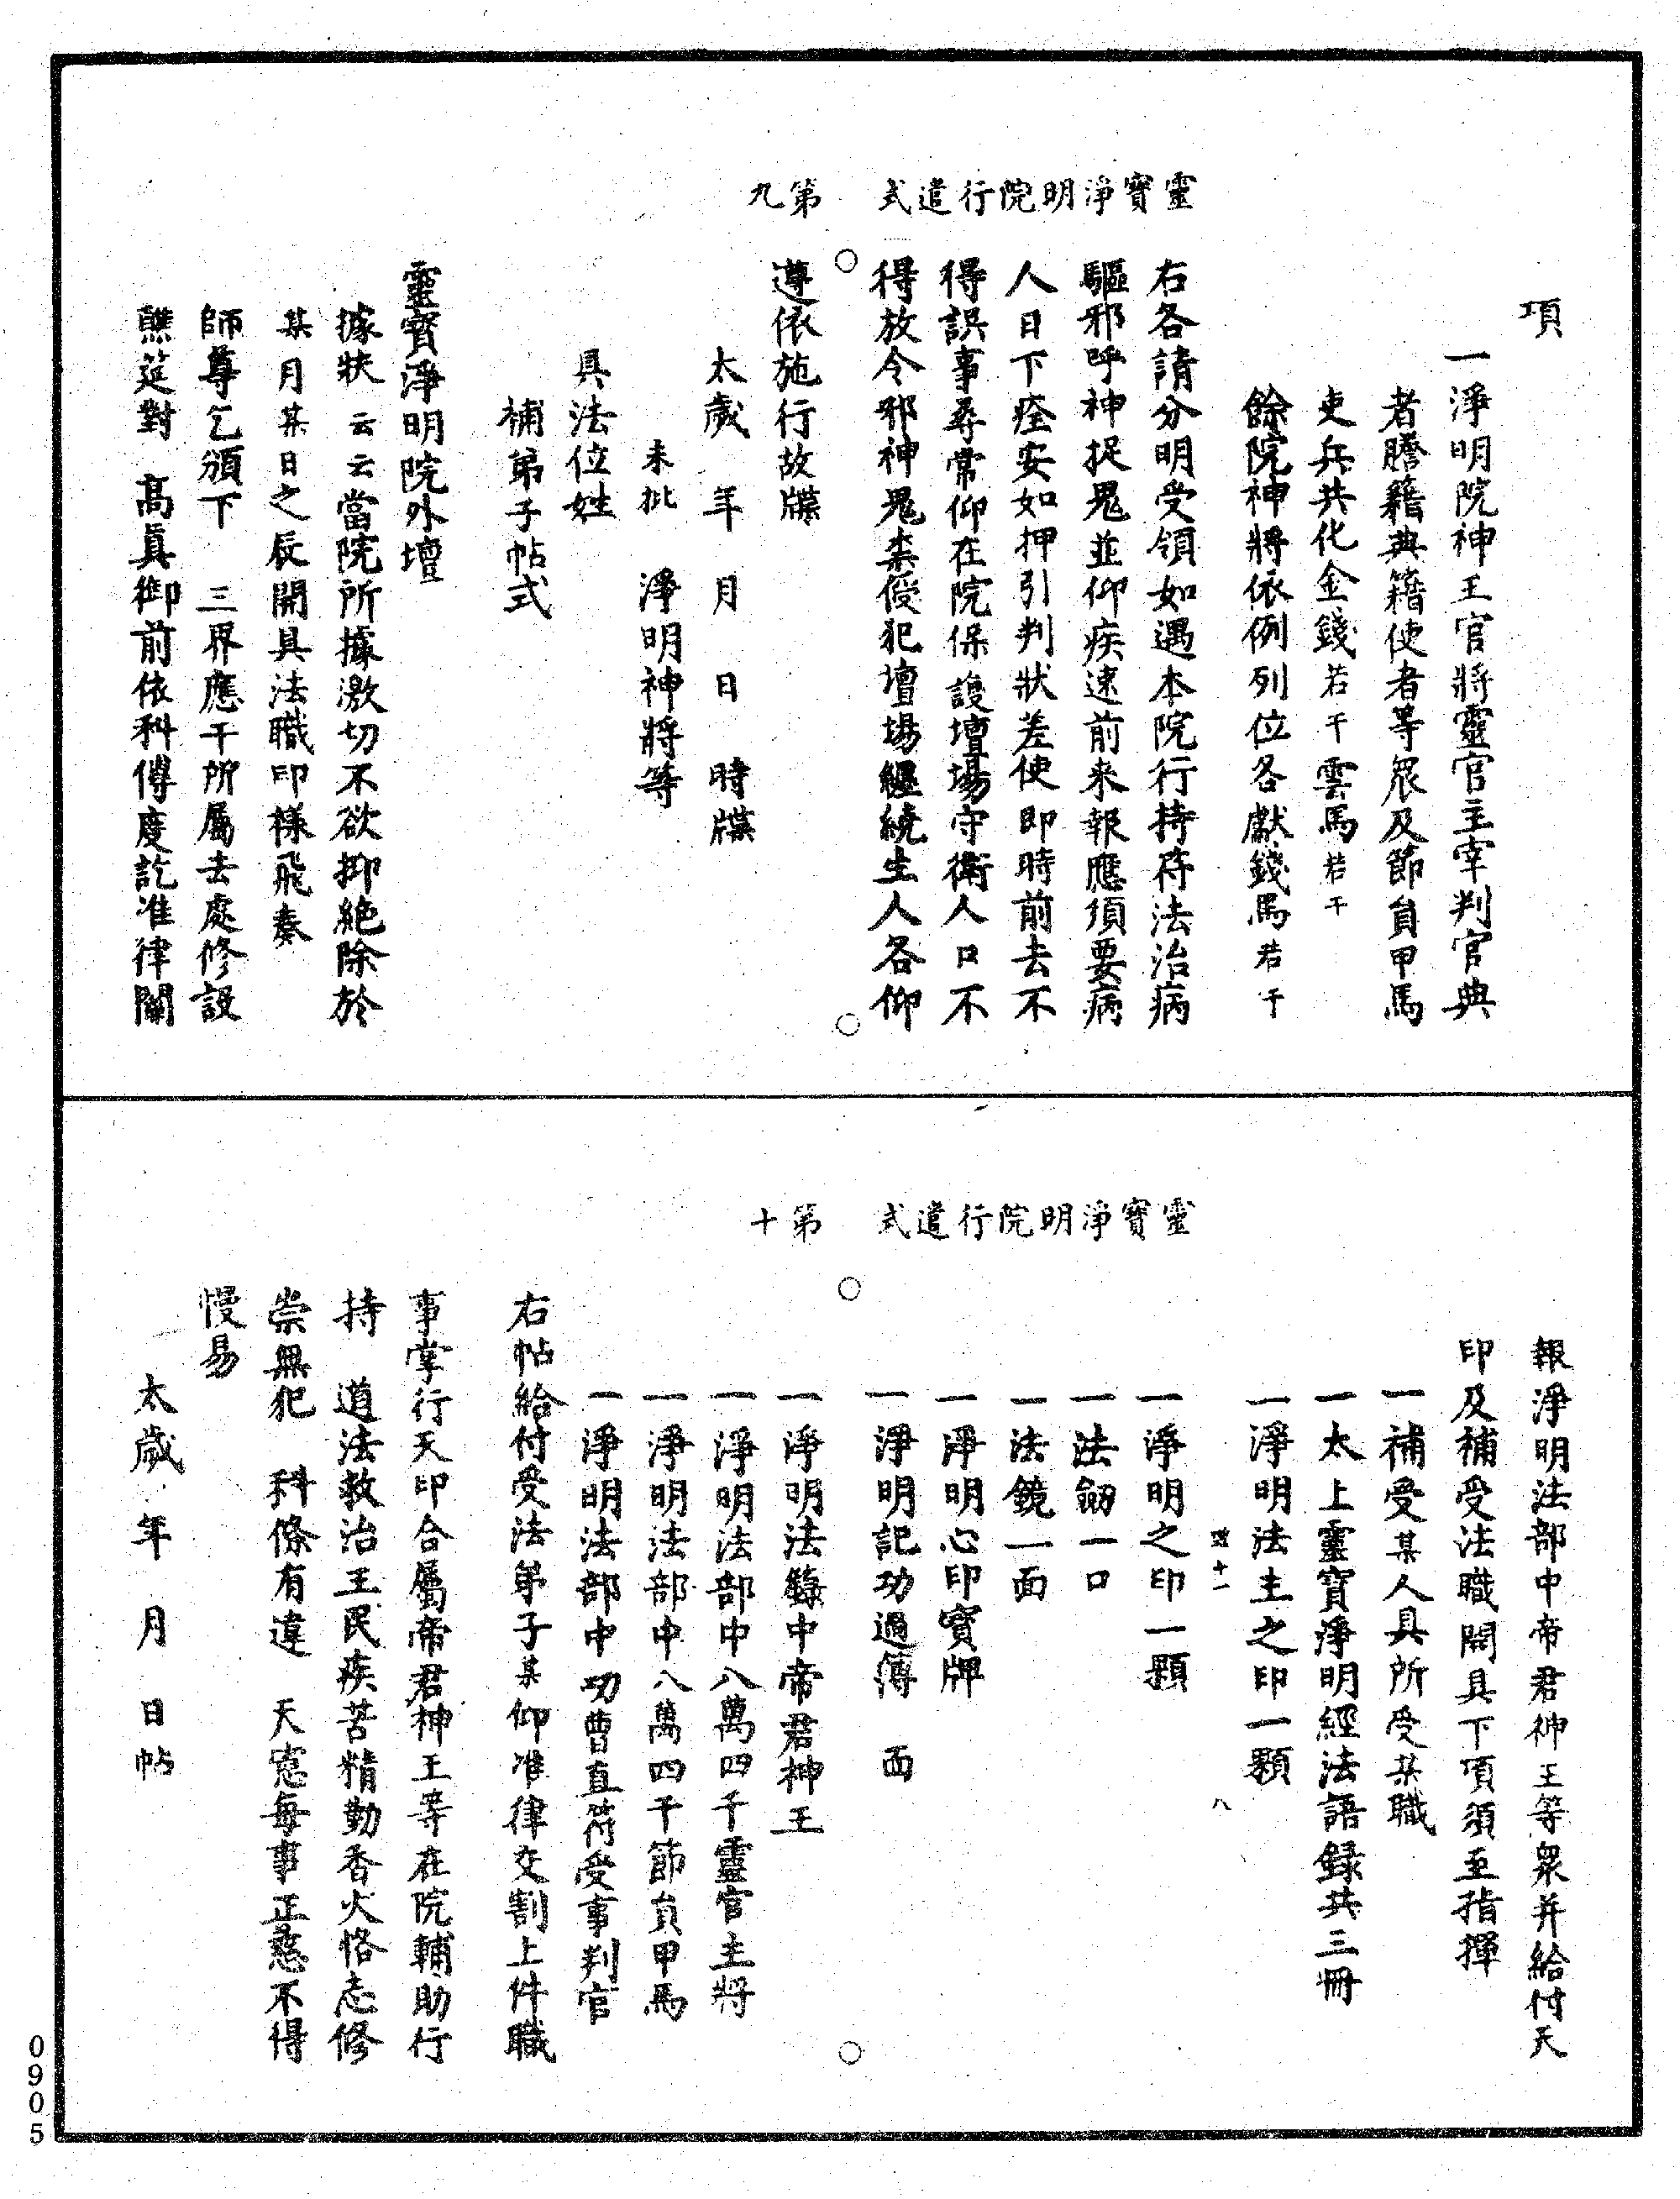 靈寶淨明院行遣式　第九
項
一淨明院神王官將靈官主宰判官典
者謄籍典籍使者等衆及節員甲馬
吏兵共化金錢若干雲馬若干
餘院神將依例列位各獻錢馬若干
右各請分明受領如遇本院行持符法治病
驅邪呼神捉鬼並仰疾速前來報應須要病
人日下痊安如押引判狀差使即時前去不
得誤事尋常仰在院保護壇場守衛人口不
得放令邪神鬼祟侵犯壇場纏繞生人各仰
遵依施行故牒
太歲　年　月　日　時牒
未批　淨明神將等
具法位姓
補弟子帖式
靈寶淨明院外壇
據狀云云當院所據激切不欲抑絶除於
某月某日之辰開具法職印樣飛奏
師尊乞頒下　三界應干所屬去處修設
醮筵對　高眞御前依科傳度訖准律關
靈寶淨明院行遣式　第十
報淨明法部中帝君神王等衆并給付天
印及補受法職開具下項須至指揮
一補受某人具所受某職
一太上靈寶淨明經法語録共三冊
一淨明法主之印一顆
十一　八
一淨明之印一顆
一法劒一口
一法鏡一面
一淨明心印寶牌
一淨明記功過簿　面
一淨明法籙中帝君神王
一淨明法部中八萬四千靈官主將
一淨明法部中八萬四千節員甲馬
一淨明法部中功曹直符受事判官
右帖給付受法弟子某仰准律交割上件職
事掌行天印合屬帝君神王等在院輔助行
持　道法救治王民疾苦精勤香火恪志修
崇無犯　科條有違　天憲每事正慤不得
慢易
太歲　年　月　日帖
0905